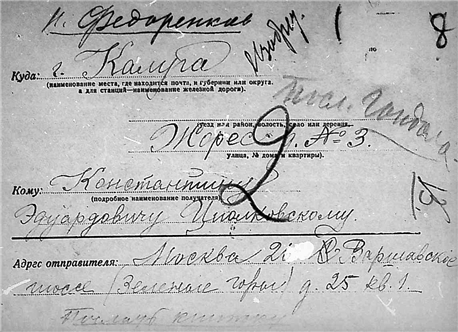 И. Федоренков
1 8
Куда: г. Калуга
(наименование места, где находится почта, и губернии или округа,
а для станций—наименование железной дороги).
уезд или район, волость, село или деревня
Жорес д. № 3.
улица, № дома и квартиры).
2
Кому: Константину
(подробное наименование получателя)
Эдуардовичу Циолковскому.
Адрес отправителя: Москва Варшавское
шоссе (Зеленые горы) д. 25 кв. 1.